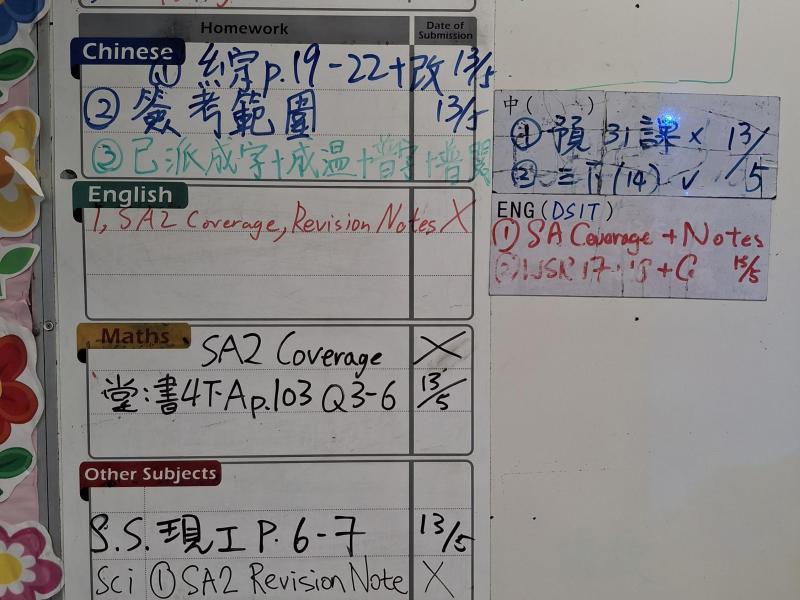 Homework
Date of Submission
Chinese
① 綜 p.19-22+改 13/5
② 簽考範圍 13/5
③ 已派成字+成温+普字+普閱
English
1, SA2 Coverage, Revision Notes X
Maths
SA2 Coverage X
堂:書4下A p.103 Q3-6 13/5
Other Subjects
S.S. 現工 P. 6-7 13/5
Sci ① SA2 Revision Note X
中( )
① 預 31 課 x 13/5
② 三下(14) ✓
ENG(DSIT)
① SA Coverage + Notes
17 + 15/5